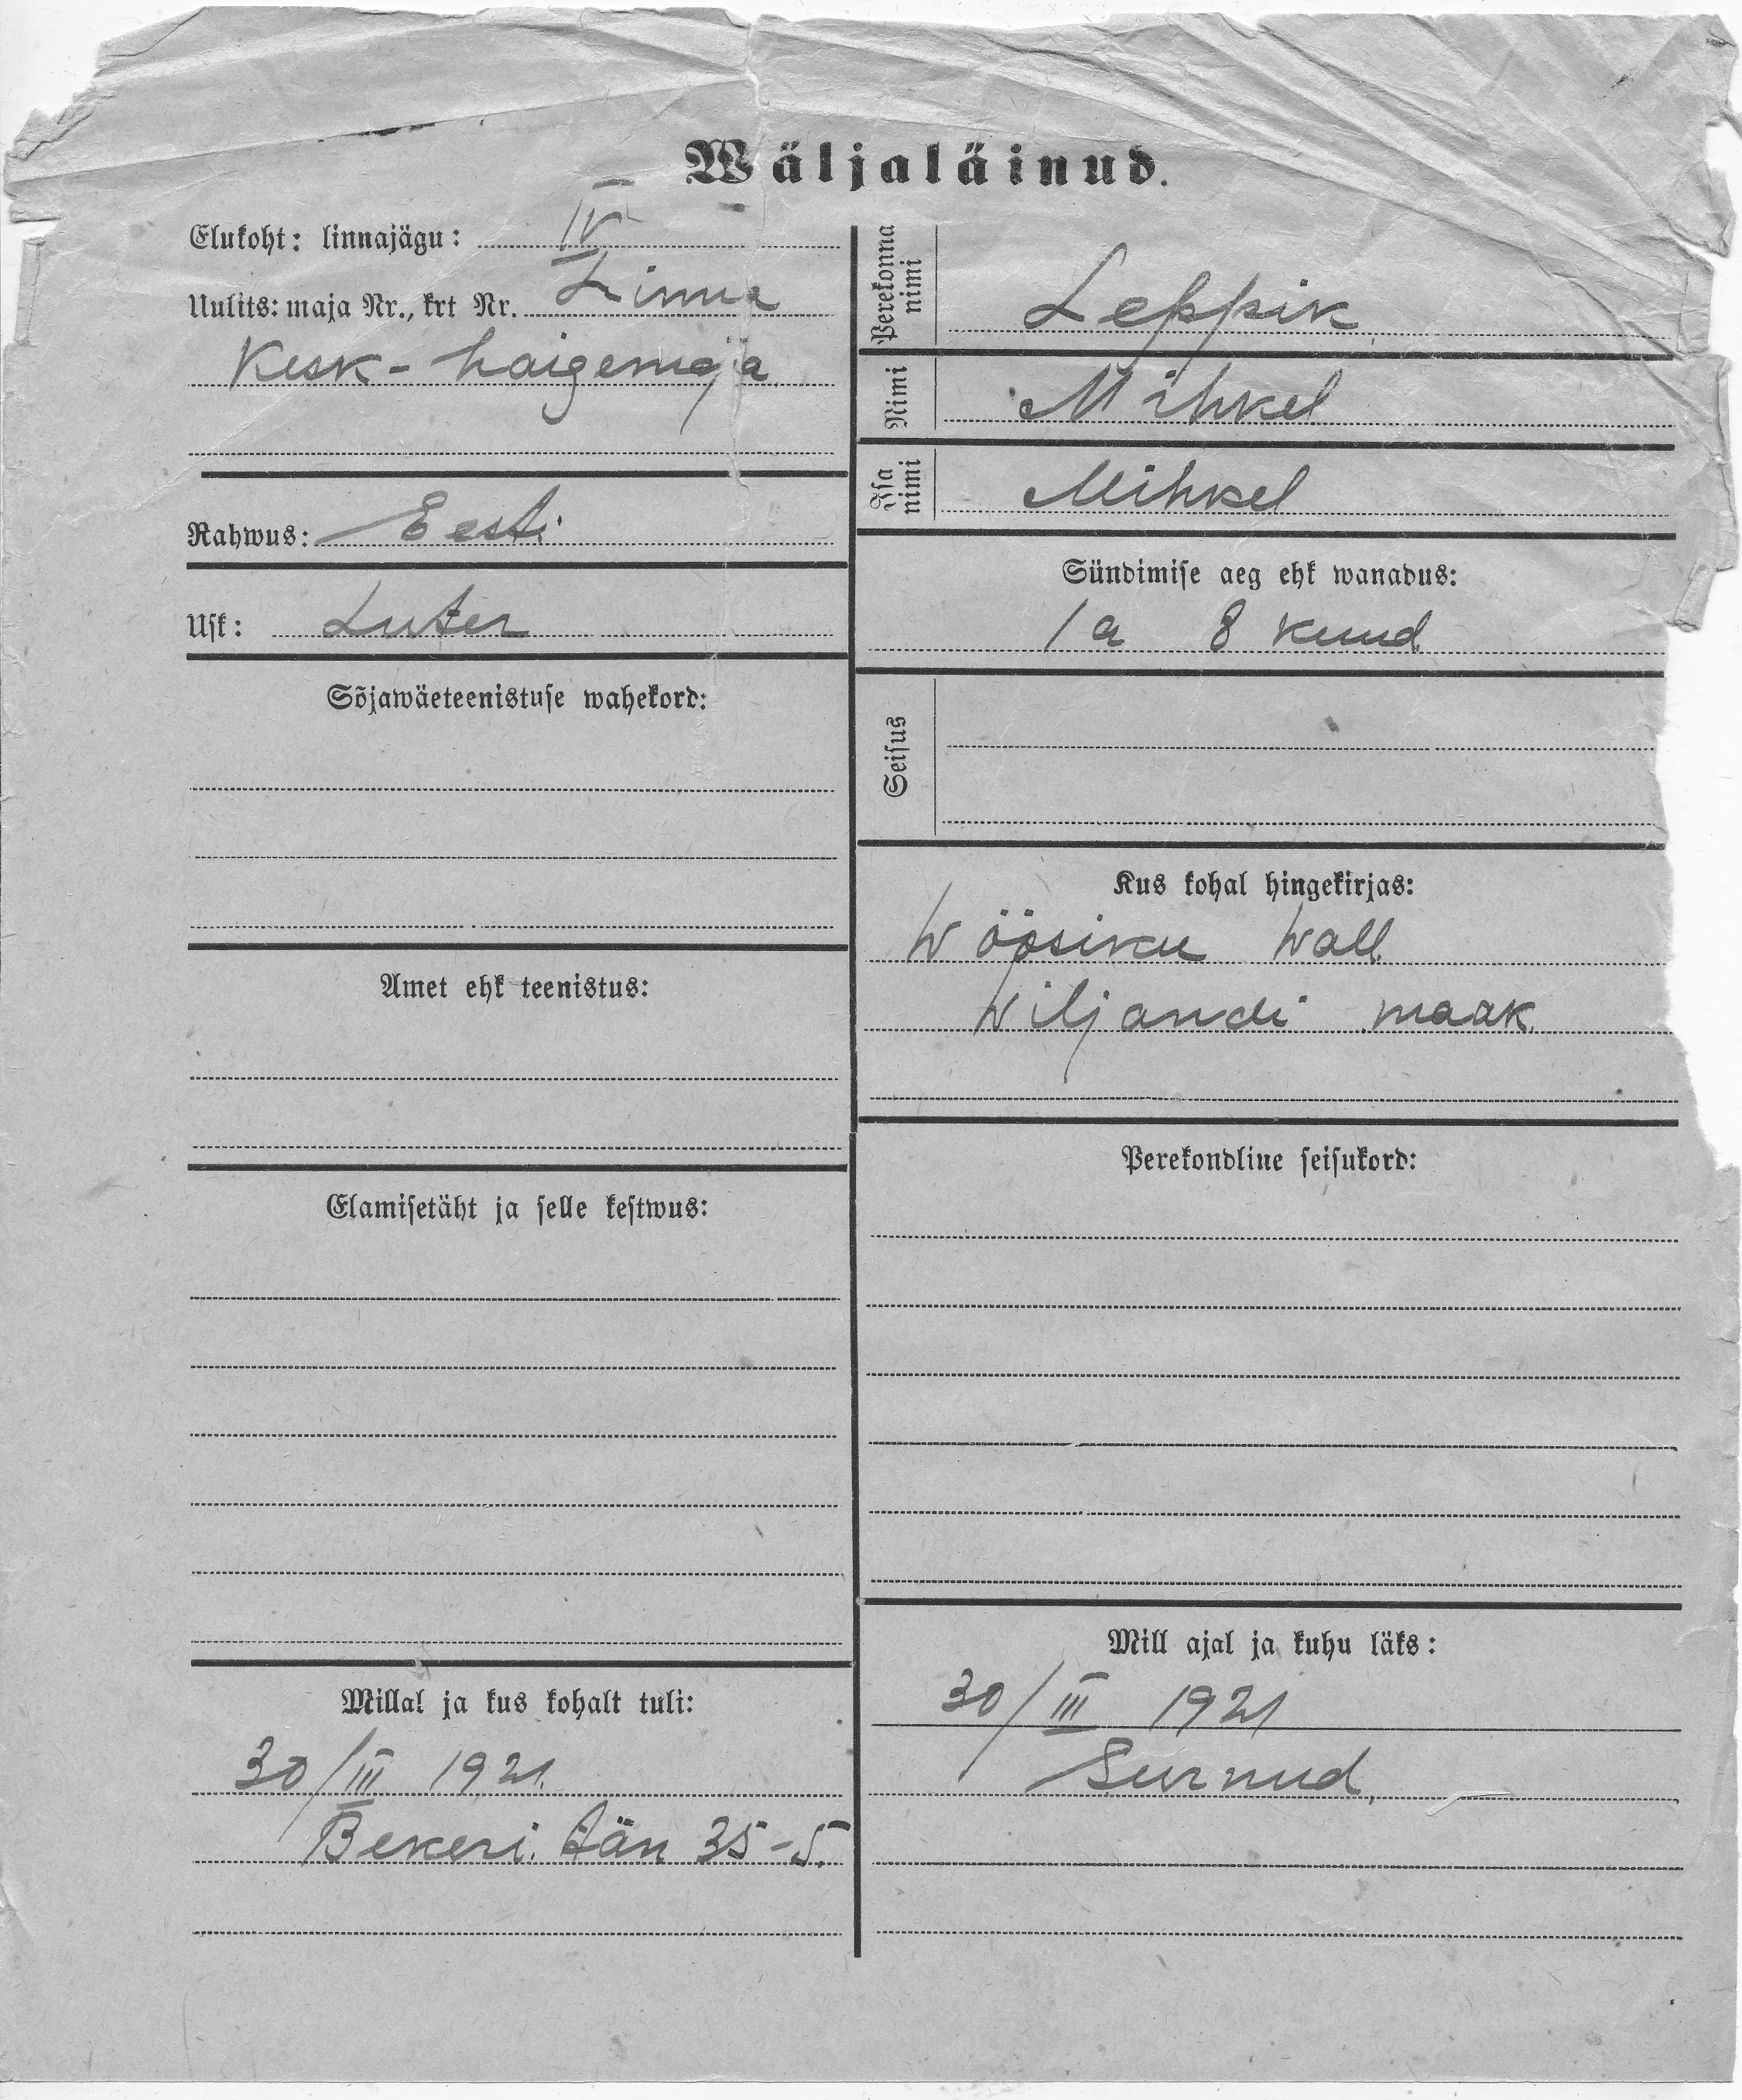 Wäljaläinud.
Elukoht: linnajägu: IV
Uulits: maja Nr., krt Nr. Linna
Kesk-haigemaja
Rahwus: Eesti
Usk: Luter
Sõjawäeteenistuse wahekord:
Amet ehk teenistus:
Elamisetäht ja selle kestwus:
Millal ja kus kohalt tuli:
30/III 1921.
Bekeri. tän 35-5.
Perekonna nimi Leppik
Nimi Mihkel
Isa nimi Mihkel
Sündimise aeg ehk wanadus:
1 a 8 kuud
Seisus
Kus kohal hingekirjas:
Wöösiku wall.
Wiljandi maak.
Perekondline seisukord:
Mill ajal ja kuhu läks:
30/III 1921
Surnud,